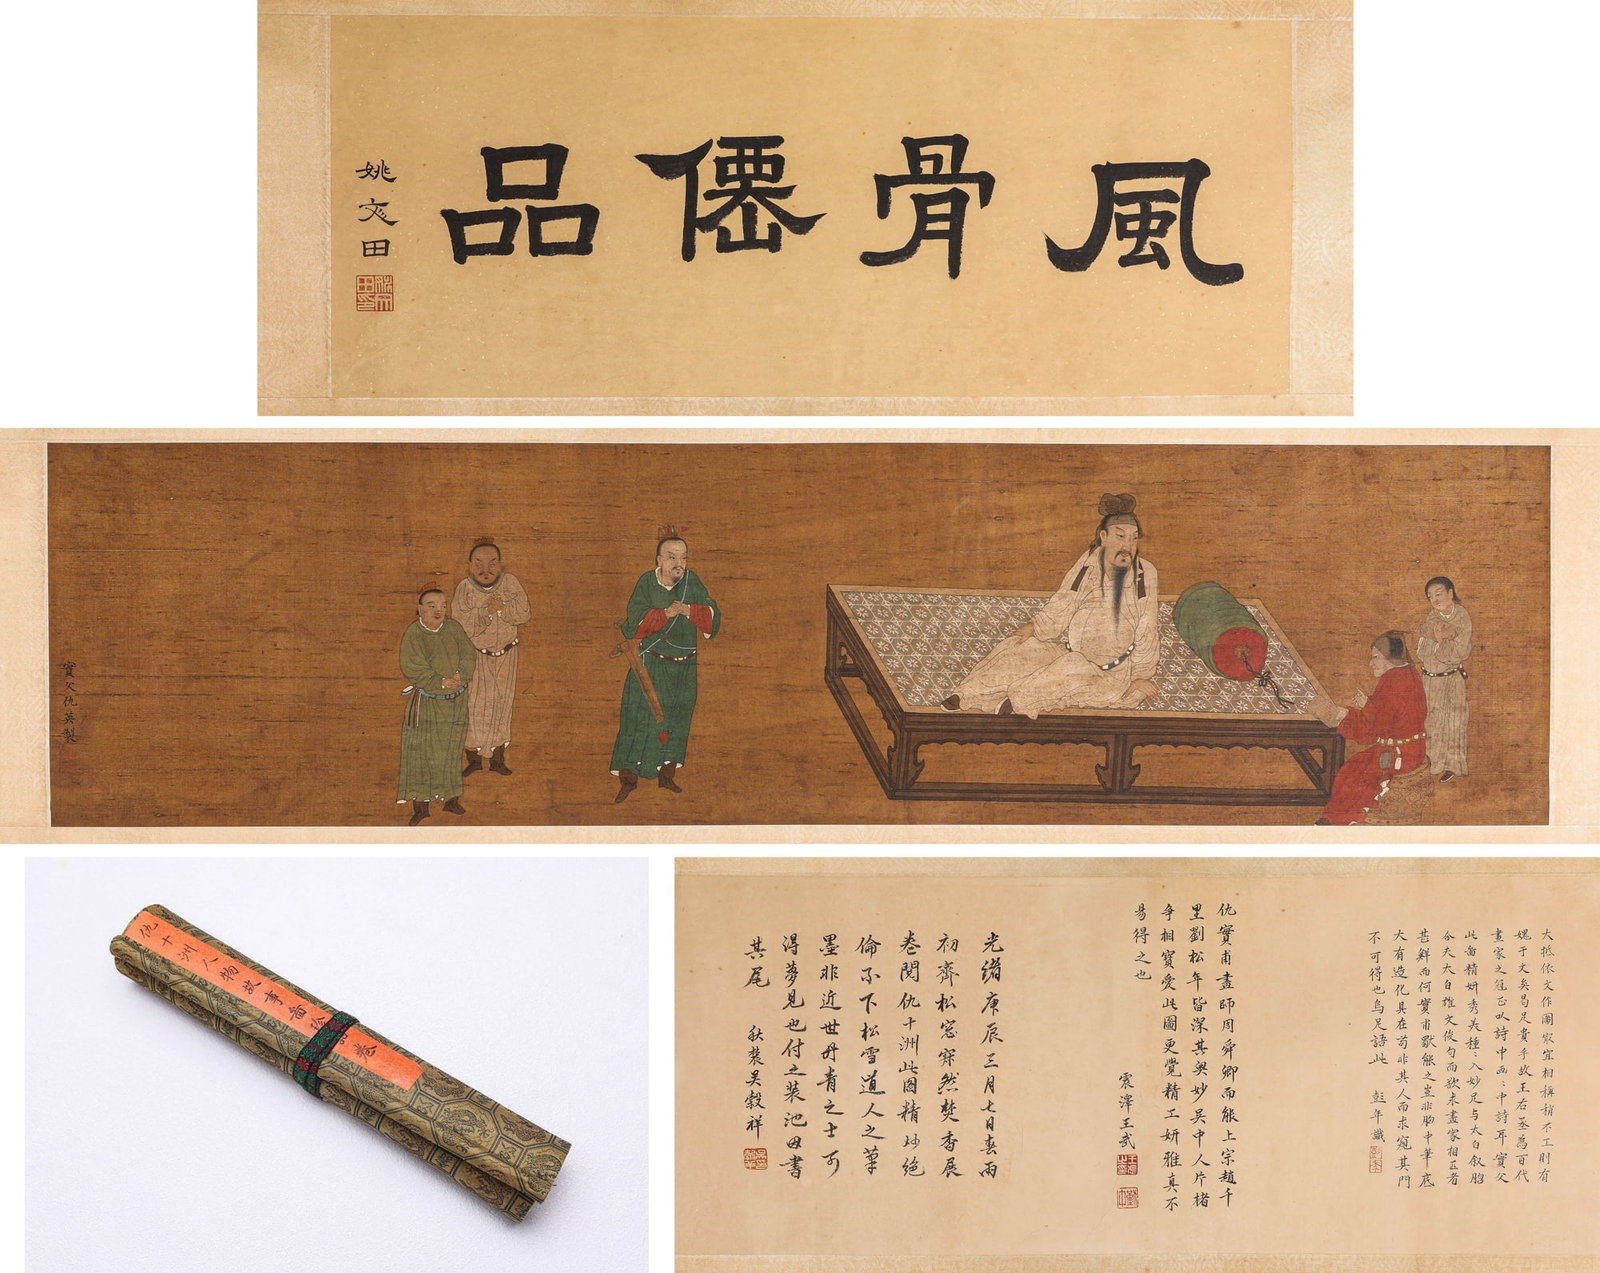 風骨僊品
姚文田
實父仇英製
仇十洲人物故事圖
卷
大抵依文作圖最宜相稱稍不工則有
媿于文矣曷足貴乎故王右丞為百代
畫家之冠正以詩中画〻中詩耳實父
此圖精妍秀美種〻入妙足与太白叙昭
今夫太白雄文俊句而欲求畫家相匹者
甚鮮而何實甫獸能之豈非胸中筆底
大有造化具在苟非其人而求窺其門
不可得也烏足語此
彭年識
仇實甫畫師周舜卿而能上宗趙千
里劉松年皆深其奥妙吴中人片楮
争相寳愛此圖更覺精工妍雅真不
易得之也
震澤王武
光緒庚辰三月七日春雨
初齊松窓寂然焚香展
卷閱仇十洲此图精妙絶
倫不下松雪道人之筆
墨非近世丹青之士可
得夢見也付之装池因書
其尾
秋農吴榖祥